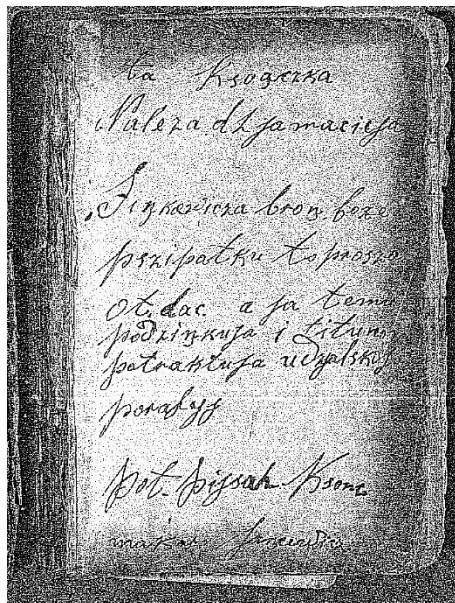 ta Ksogeczka
Naleza dlja macieja
Sinkevicza bron boze
pszipatku to prosza
ot.dac a ja temu
podzinkuja i titunom
potraktuja udzelskij
parafyj
pot. pijsah Ksonc